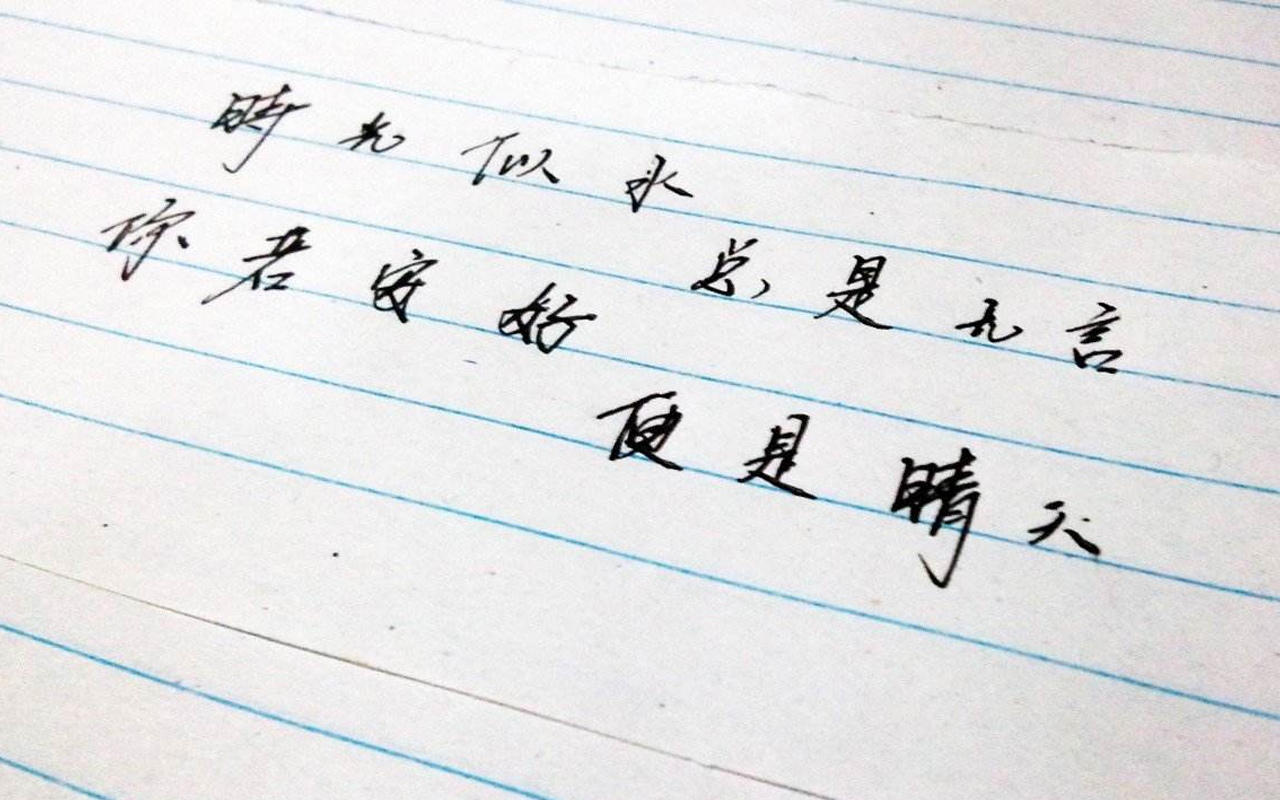 時光似水
总是无言
你若安好
便是晴天